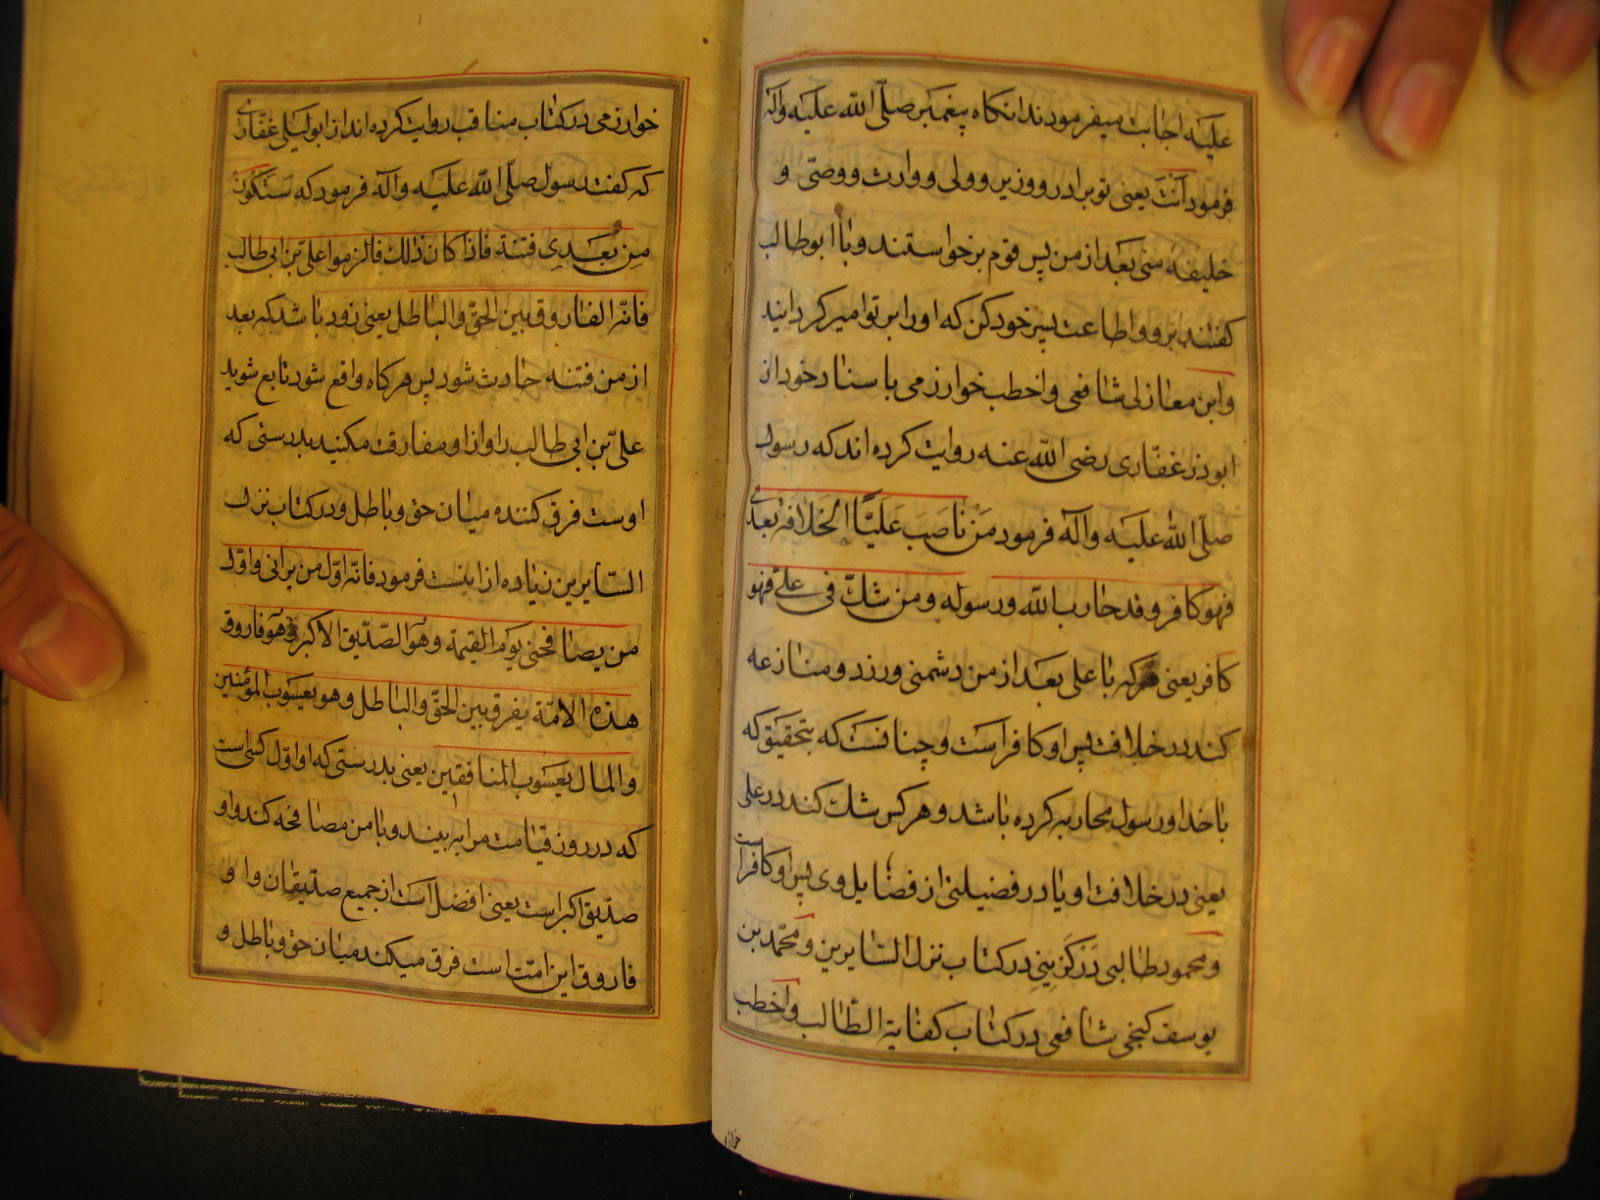 علیه اجابت میفرمودند انکاه پیغمبر صلّی الله علیه وآله
فرمود اَنْتَ یعنی تو برادر و وزیر و ولی و وارث و وصّی و
خلیفهٔ منی بعد از من پس قوم برخواستند و با ابو طالب
کفتند برو و اطاعت پسر خود کن که او را بر تو امیر کردانید
و ابن مغازلی شافعی و اخطب خوارزمی باسناد خود از
ابوذر غفّاری رضی الله عنه روایت کرده اند که رسول
صلّی الله علیه وآله فرمود مَنْ نَاصَبَ عَلیًّا الخلافة بعدی
فهو کافر و قد حارب الله و رسوله و من شكّ فی علیّ فهو
کافر یعنی هرکه با علی بعد از من دشمنی ورزد و منازعه
کند در خلافت پس او کافر است و چنانست که بتحقیق که
با خدا و رسول محاربه کرده باشد و هرکس شك کند در علی
یعنی در خلافت او یا در فضیلتی از فضایل وی پس او کافر است
و محمود طالبی دَرْکَزینی در کتاب نزل السّایرین و محمّد بن
یوسف کنجی شافعی در کتاب کفایة الطّالب و اخطب
خوارز
خوارزمی در کتاب مناقب روایت کرده اند از ابو لیلی غفّاری
که کفت رسول صلّی الله علیه وآله فرمود که سَتَکُونُ
مِن بَعْدِی فتنة فاذا کان ذلك فالزموا علیّ بن ابی طالب
فانّه الفاروق بین الحقّ والباطل یعنی زود باشد که بعد
از من فتنه حادث شود پس هرکاه واقع شود تابع شوید
علیّ بن ابی طالب را و از او مفارقت مکنید بدرستی که
اوست فرق کننده میان حق و باطل و در کتاب نزل
السّایرین زیاده از اینست فرمود فانّه اوّل من یرانی و اوّل
من یصافحنی یوم القیمة وهو الصّدّیق الاکبر و هو فاروق
هذه الامّة یفرق بین الحقّ والباطل وهو یعسوب المؤمنین
والمال یعسوب المنافقین یعنی بدرستی که او اوّل کسی است
که در روز قیامت مرا به بیند و با من مصافحه کند و او
صدّیق اکبر است یعنی افضل است از جمیع صدّیقان و او
فاروق این امّت است فرق میکند میان حق و باطل و